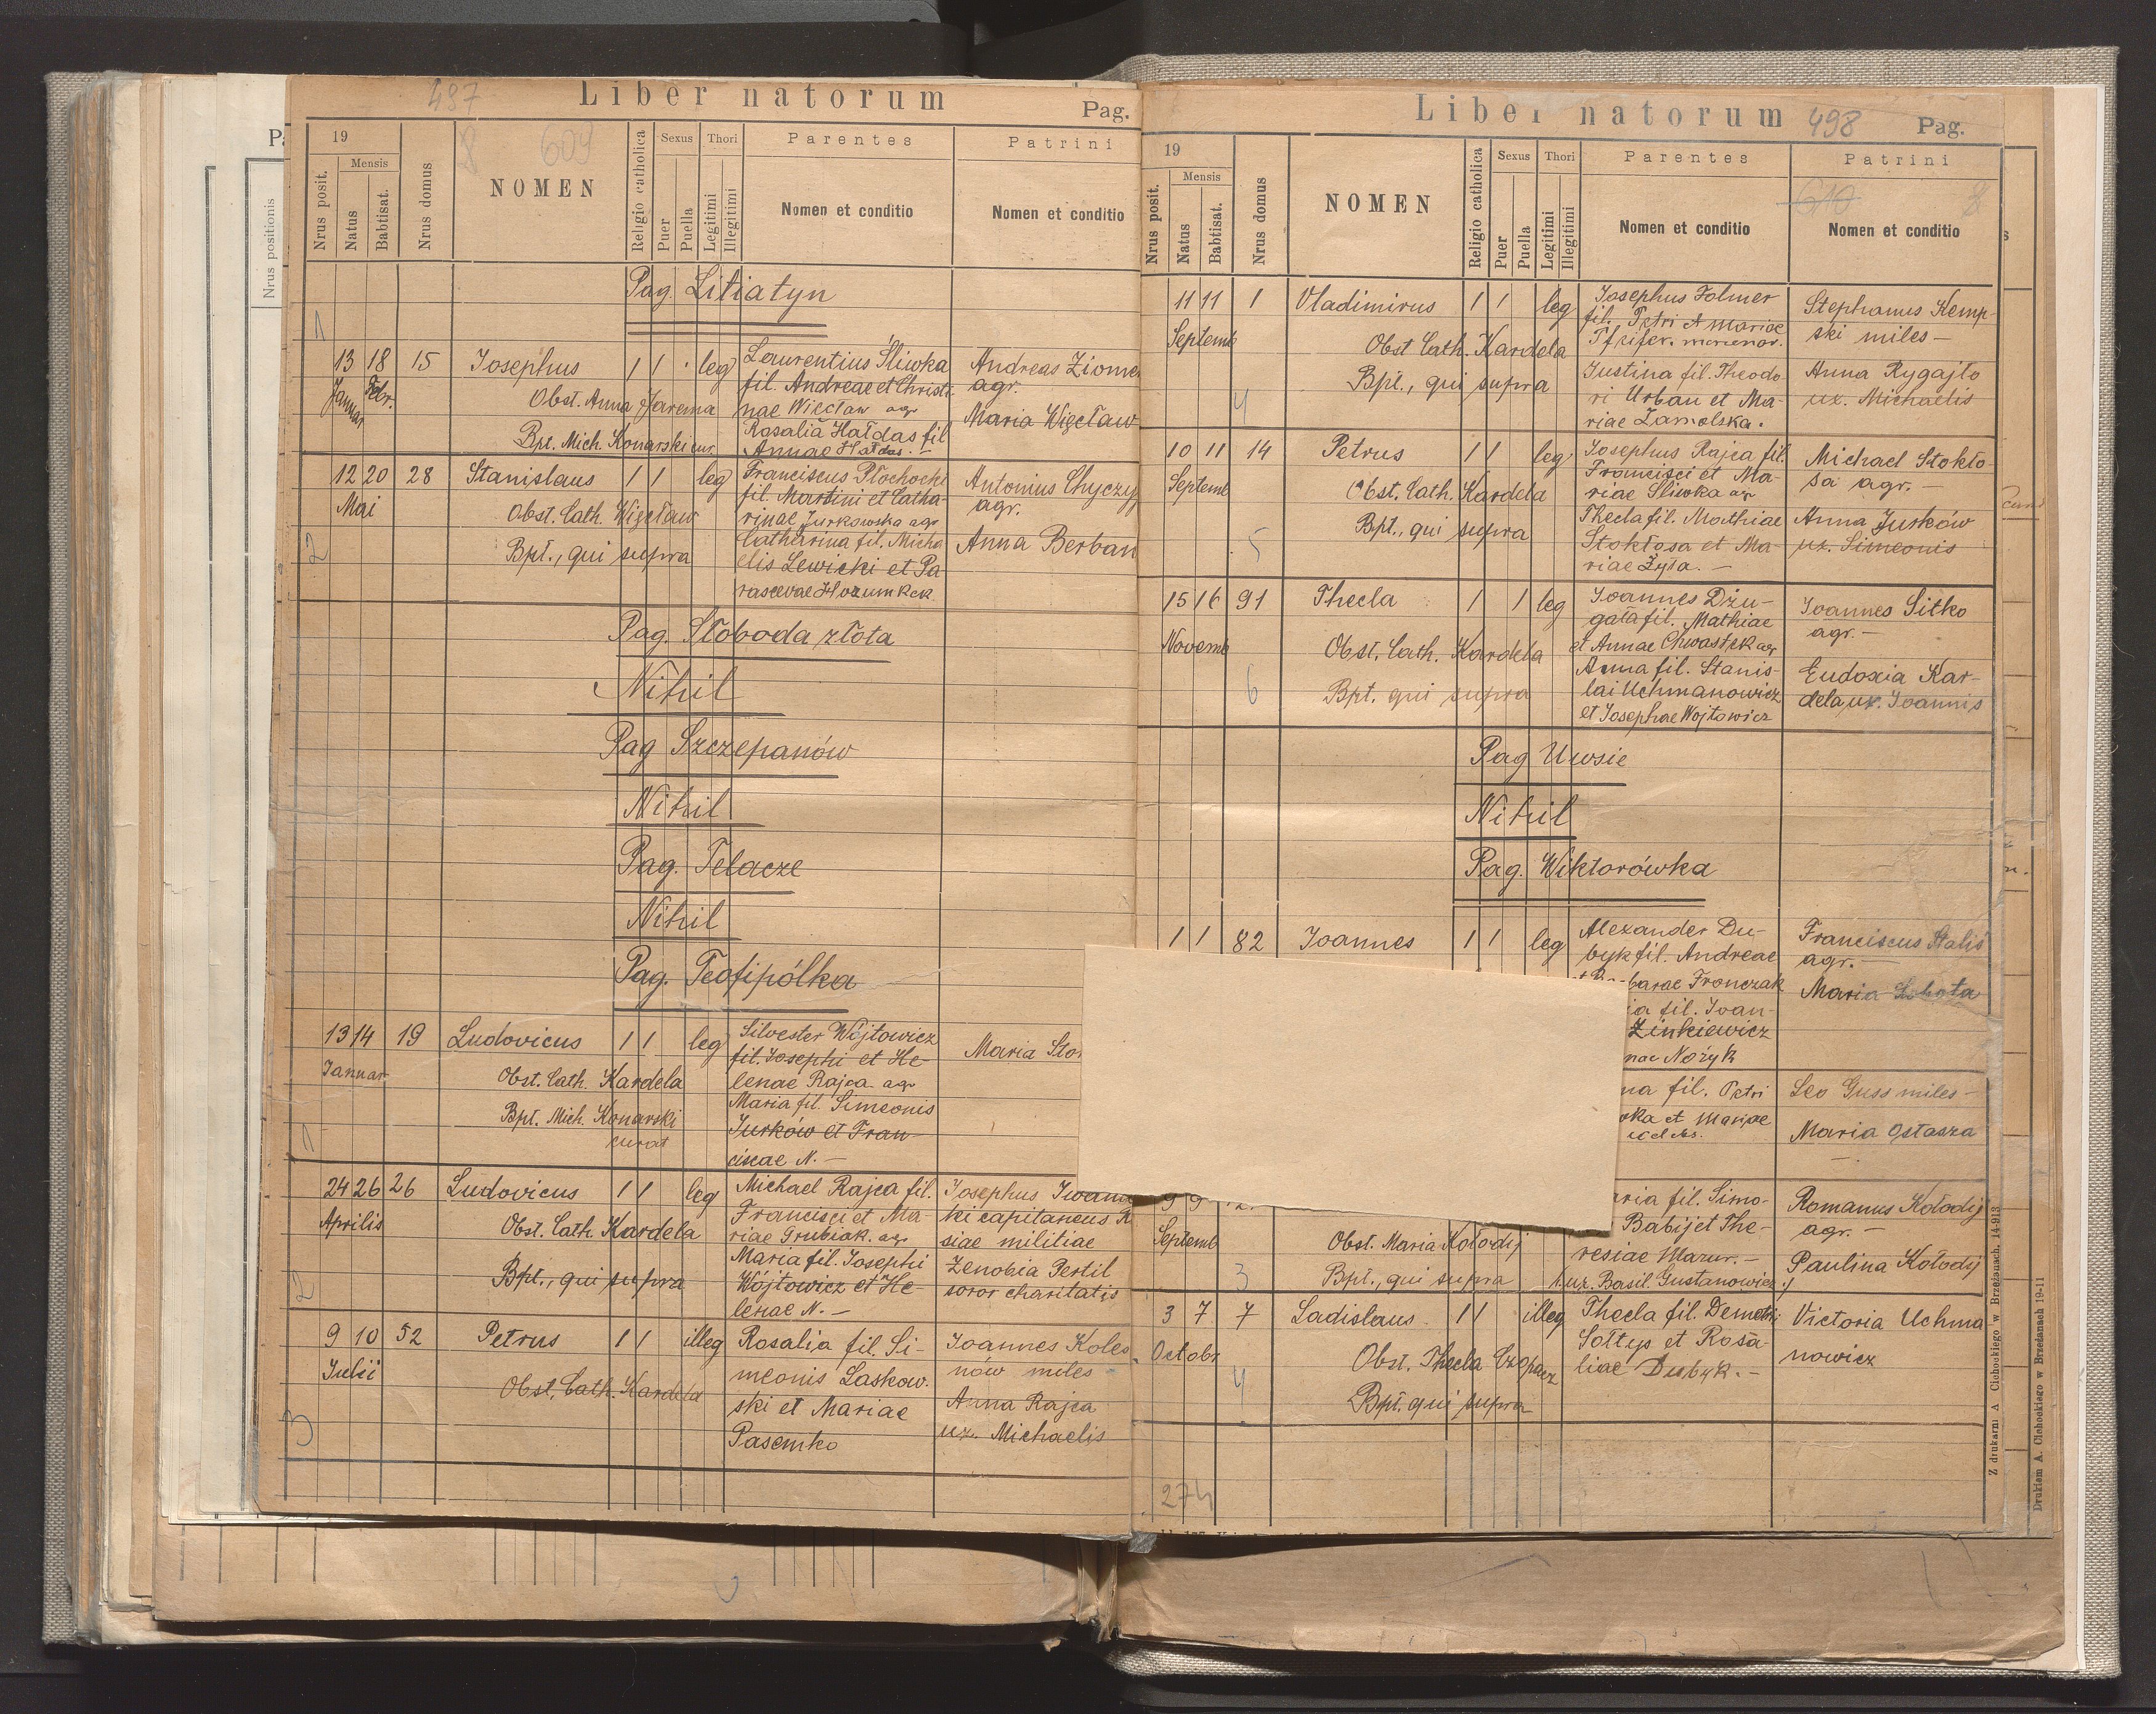 497
Liber natorum
Pag.
19
Mensis
Nrus posit.
Natus
Babtisat.
Nrus domus
8 609
NOMEN
Religio catholica
Sexus
Puer
Puella
Thori
Legitimi
Illegitimi
Parentes
Nomen et conditio
Patrini
Nomen et conditio
Nrus positionis
Pag. Litiatyn
1
13 18 15 Josephus 1 1 leg Laurentius Śliwka
Januar Febr.
fil. Andreae et Christi-
nae Więcław agr
Rosalia Hałdas fil
Annae Hałdas. —
Obst. Anna Jarema
Bpt. Mich. Konarski cur.
Andreas Ziome
agr.
Maria Więcław
2
12 20 28 Stanislaus 1 1 leg Franciscus Płochocki
Mai
fil. Martini et Catha-
rinae Jurkowska agr
Catharina fil. Micha
elis Lewicki et Pa
rascevae
Obst. Cath. Więcław
Bpt., qui supra
Antonius Chyczy
agr.
Anna Berban
Pag. Słoboda złota
Nihil
Pag Szczepanów
Nihil
Pag. Telacze
Nihil
Pag. Teofipólka
1
13 14 19 Ludovicus 1 1 leg Silvester Wójtowicz
Januar
fil. Josephi et He-
lenae Rajca agr
Maria fil. Simeonis
Jurków et Fran-
ciscae N. —
Obst. Cath. Kardela
Bpt. Mich. Konarski
curat
Maria Sto
2
24 26 26 Ludovicus 1 1 leg Michael Rajca fil.
Aprilis
Francisci et Ma-
riae Grubiak. agr
Maria fil. Josephi
Wójtowicz et He-
lenae N. —
Obst. Cath. Kardela
Bpt., qui supra
Josephus Iwan
ki capitaneus R
siae militiae
Zenobia Pertil
soror charitatis
3
9 10 52 Petrus 1 1 illeg Rosalia fil. Si-
Julii
meonis Laskow-
ski et Mariae
Pasemko
Obst. Cath. Kardela
Joannes Koles
nów miles -
Anna Rajca
ux. Michaelis
Liber natorum 498
Pag.
19
Mensis
Nrus posit.
Natus
Babtisat.
Nrus domus
NOMEN
Religio catholica
Sexus
Puer
Puella
Thori
Legitimi
Illegitimi
Parentes
Nomen et conditio
Patrini
610 8
Nomen et conditio
11 11 1 Vladimirus 1 1 leg Josephus Folmer
Septemb
fil. Petri et Mariae
Justina fil. Theodo-
ri Urban et Ma-
riae Zamolska.
Obst Cath. Kardela
Bpt., qui supra
4
Stephanus Kemp-
ski miles —
Anna Rygajło
ux. Michaelis
10 11 14 Petrus 1 1 leg Josephus Rajca fil.
Septemb
Francisci et Ma-
riae Śliwka agr
Thecla fil. Mathiae
Stokłosa et Ma-
riae Żyła. —
Obst. Cath. Kardela
Bpt., qui supra
5
Michael Stokło-
sa agr. —
Anna Jurków
ux. Simeonis
15 16 91 Thecla 1 1 leg Joannes Dżu-
Novemb
gała fil. Mathiae
et Annae Chwastek agr
Anna fil. Stanis-
lai Uchmanowicz
et Josephae Wojtowicz
Obst. Cath. Kardela
Bpt. qui supra
6
Joannes Sitko
agr. —
Eudoxia Kar-
dela ux. Joannis
Pag Uwsie
Nihil
Pag. Wiktorówka
1 1 82 Joannes 1 1 leg Alexander Du-
byk fil. Andreae
barae Fronczak
ia fil. Joan-
Zinkiewicz
nae Nożyk
Franciscus Haliś
agr. —
Maria Sobota
na fil. Petri
oka et Mariae
Leo Guss miles —
Maria Ostasza
9 9 12
Septemb
aria fil. Simo-
Babij et The-
resiae Mazur. —
(ux. Basil. Gustanowicz)
Obst. Maria Kołodij
Bpt., qui supra
3
Romanus Kołodij
agr. —
Paulina Kołodij
3 7 7 Ladislaus 1 1 illeg Thecla fil. Demetri
Octobr
Sołtys et Rosa-
liae Dubyk. —
Obst. Thecla Czopacz
Bpt. qui supra
4
Victoria Uchma
nowicz
274
Z drukarni A Cichockiego w Brzeżanach. 14-913
Drukiem A. Cichockiego w Brzeżanach 19-11